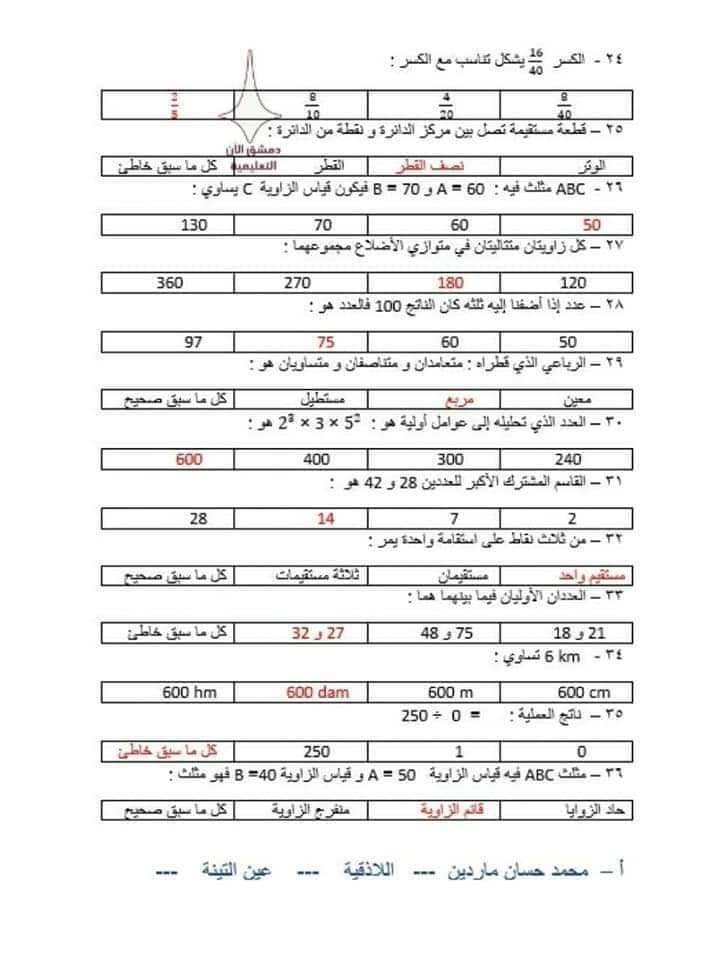 ٢٤ - الكسر 16/40 يشكل تناسب مع الكسر :
8/40 4/20 8/10 2/5
٢٥ – قطعة مستقيمة تصل بين مركز الدائرة و نقطة من الدائرة :
دمشق الآن
التعليمية
الوتر نصف القطر القطر كل ما سبق خاطئ
٢٦ - ABC مثلث فيه : A = 60 و B = 70 فيكون قياس الزاوية C يساوي :
50 60 70 130
٢٧ – كل زاويتان متتاليتان في متوازي الأضلاع مجموعهما :
120 180 270 360
٢٨ – عدد إذا أضفنا إليه ثلثه كان الناتج 100 فالعدد هو :
50 60 75 97
٢٩ – الرباعي الذي قطراه : متعامدان و متناصفان و متساويان هو :
معين مربع مستطيل كل ما سبق صحيح
٣٠ – العدد الذي تحليله إلى عوامل أولية هو : 2³ × 3 × 5² هو :
240 300 400 600
٣١ – القاسم المشترك الأكبر للعددين 28 و 42 هو :
2 7 14 28
٣٢ – من ثلاث نقاط على استقامة واحدة يمر :
مستقيم واحد مستقيمان ثلاثة مستقيمات كل ما سبق صحيح
٣٣ – العددان الأوليان فيما بينهما هما :
21 و 18 75 و 48 27 و 32 كل ما سبق خاطئ
٣٤ - 6 km تساوي :
600 cm 600 m 600 dam 600 hm
٣٥ – ناتج العملية : 250 ÷ 0 =
0 1 250 كل ما سبق خاطئ
٣٦ – مثلث ABC فيه قياس الزاوية A = 50 و قياس الزاوية B =40 فهو مثلث :
حاد الزوايا قائم الزاوية منفرج الزاوية كل ما سبق صحيح
أ – محمد حسان ماردين --- اللاذقية --- عين التينة ---